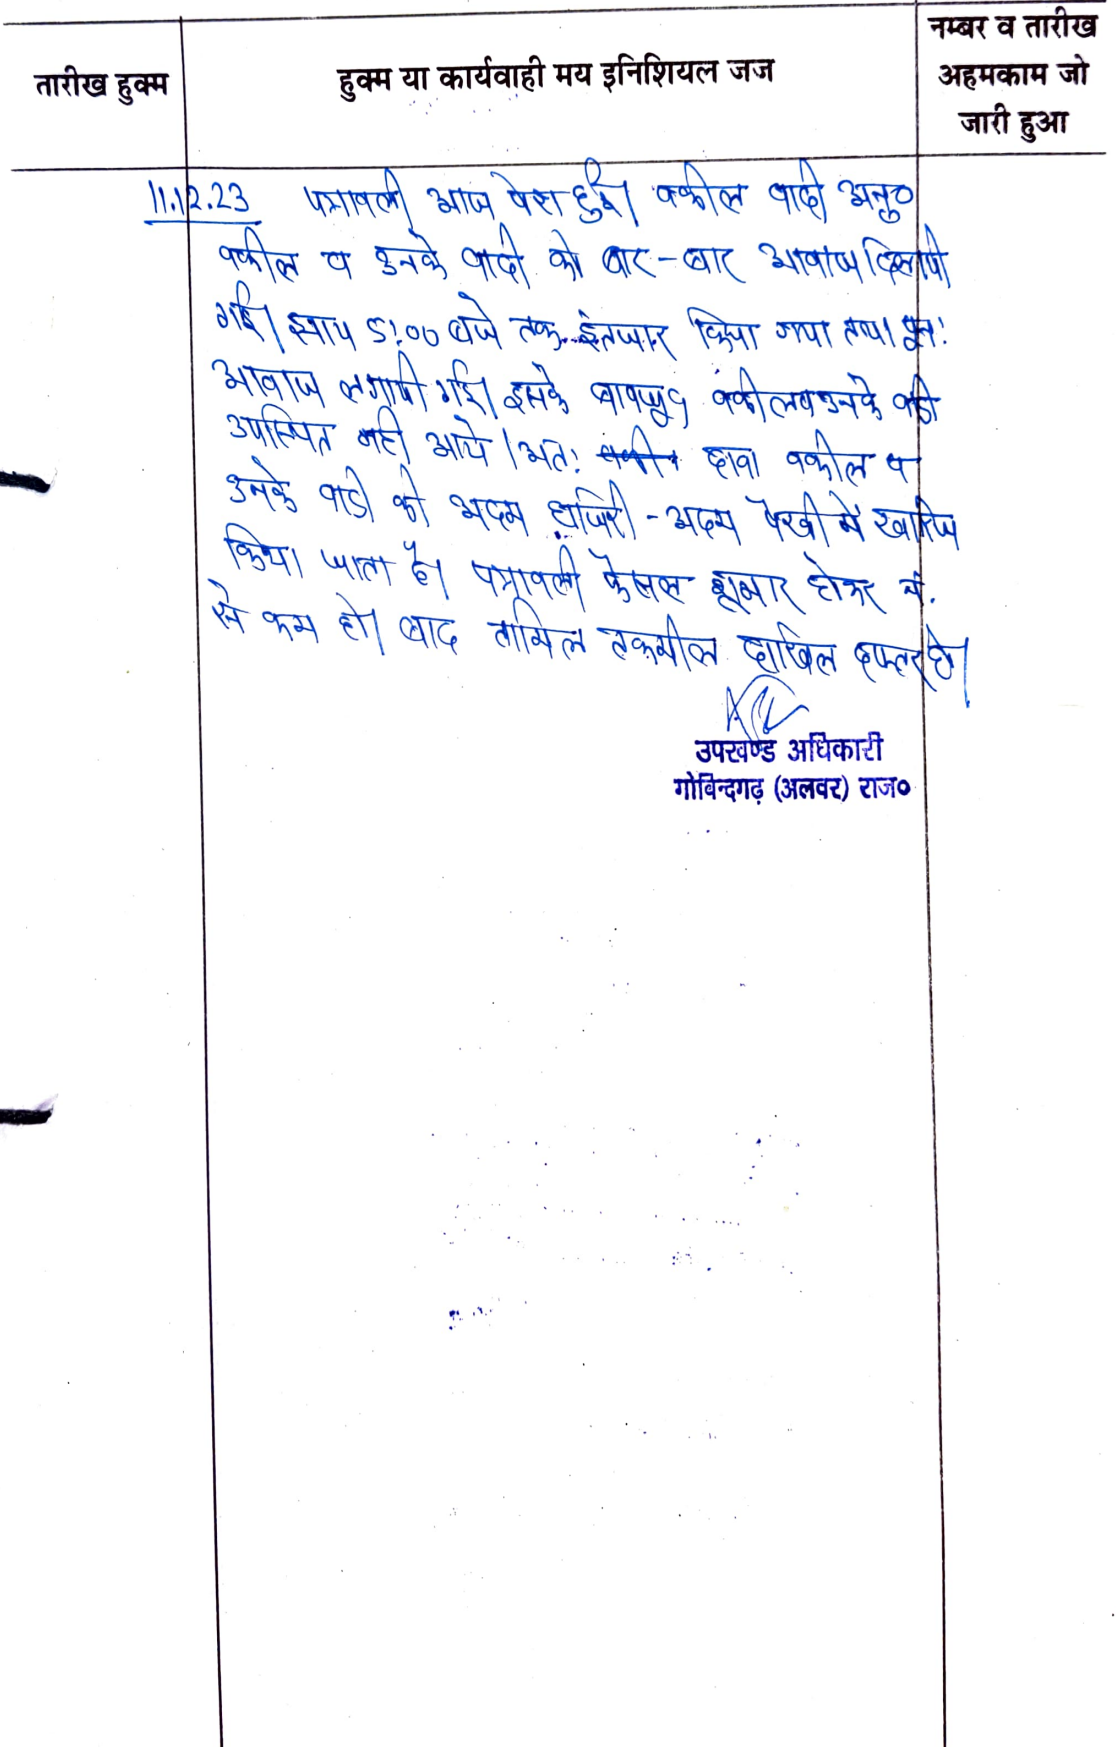 तारीख हुक्म
हुक्म या कार्यवाही मय इनिशियल जज
नम्बर व तारीख
अहमकाम जो
जारी हुआ
11.12.23 पत्रावली आज पेश हुई। वकील वादी अनु०
वकील व उनके वादी को बार-बार आवाज दिलायी
गई। 5:00 बजे तक इंतजार किया गया तथा पुन:
आवाज लगायी गई। इसके बावजूद वकील व उनके वादी
उपस्थित नही आये। अत: दावा वकील व
उनके वादी को अदम हाजिरी - अदम पैरवी में खारिज
किया जाता है। पत्रावली फैसल शुमार होकर नं.
से कम हो। बाद तामिल तकमील दाखिल दफ्तर हो।
उपखण्ड अधिकारी
गोविन्दगढ़ (अलवर) राज०